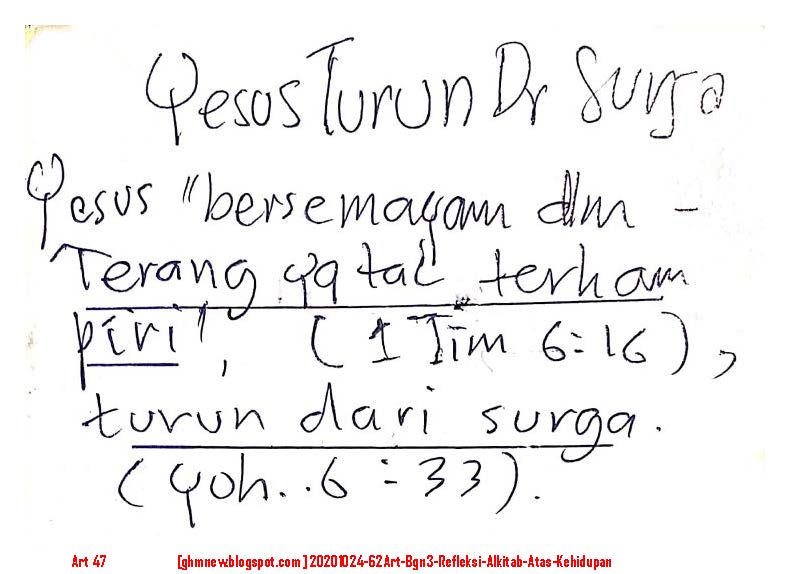 Yesus Turun Dr Surga
Yesus "bersemayam dlm -
Terang yg tak terham
piri", (1 Tim 6:16),
turun dari surga.
(Yoh..6:33).
Art 47 [ghmnew.blogspot.com] 20201024-62Art-Bgn3-Refleksi-Alkitab-Atas-Kehidupan